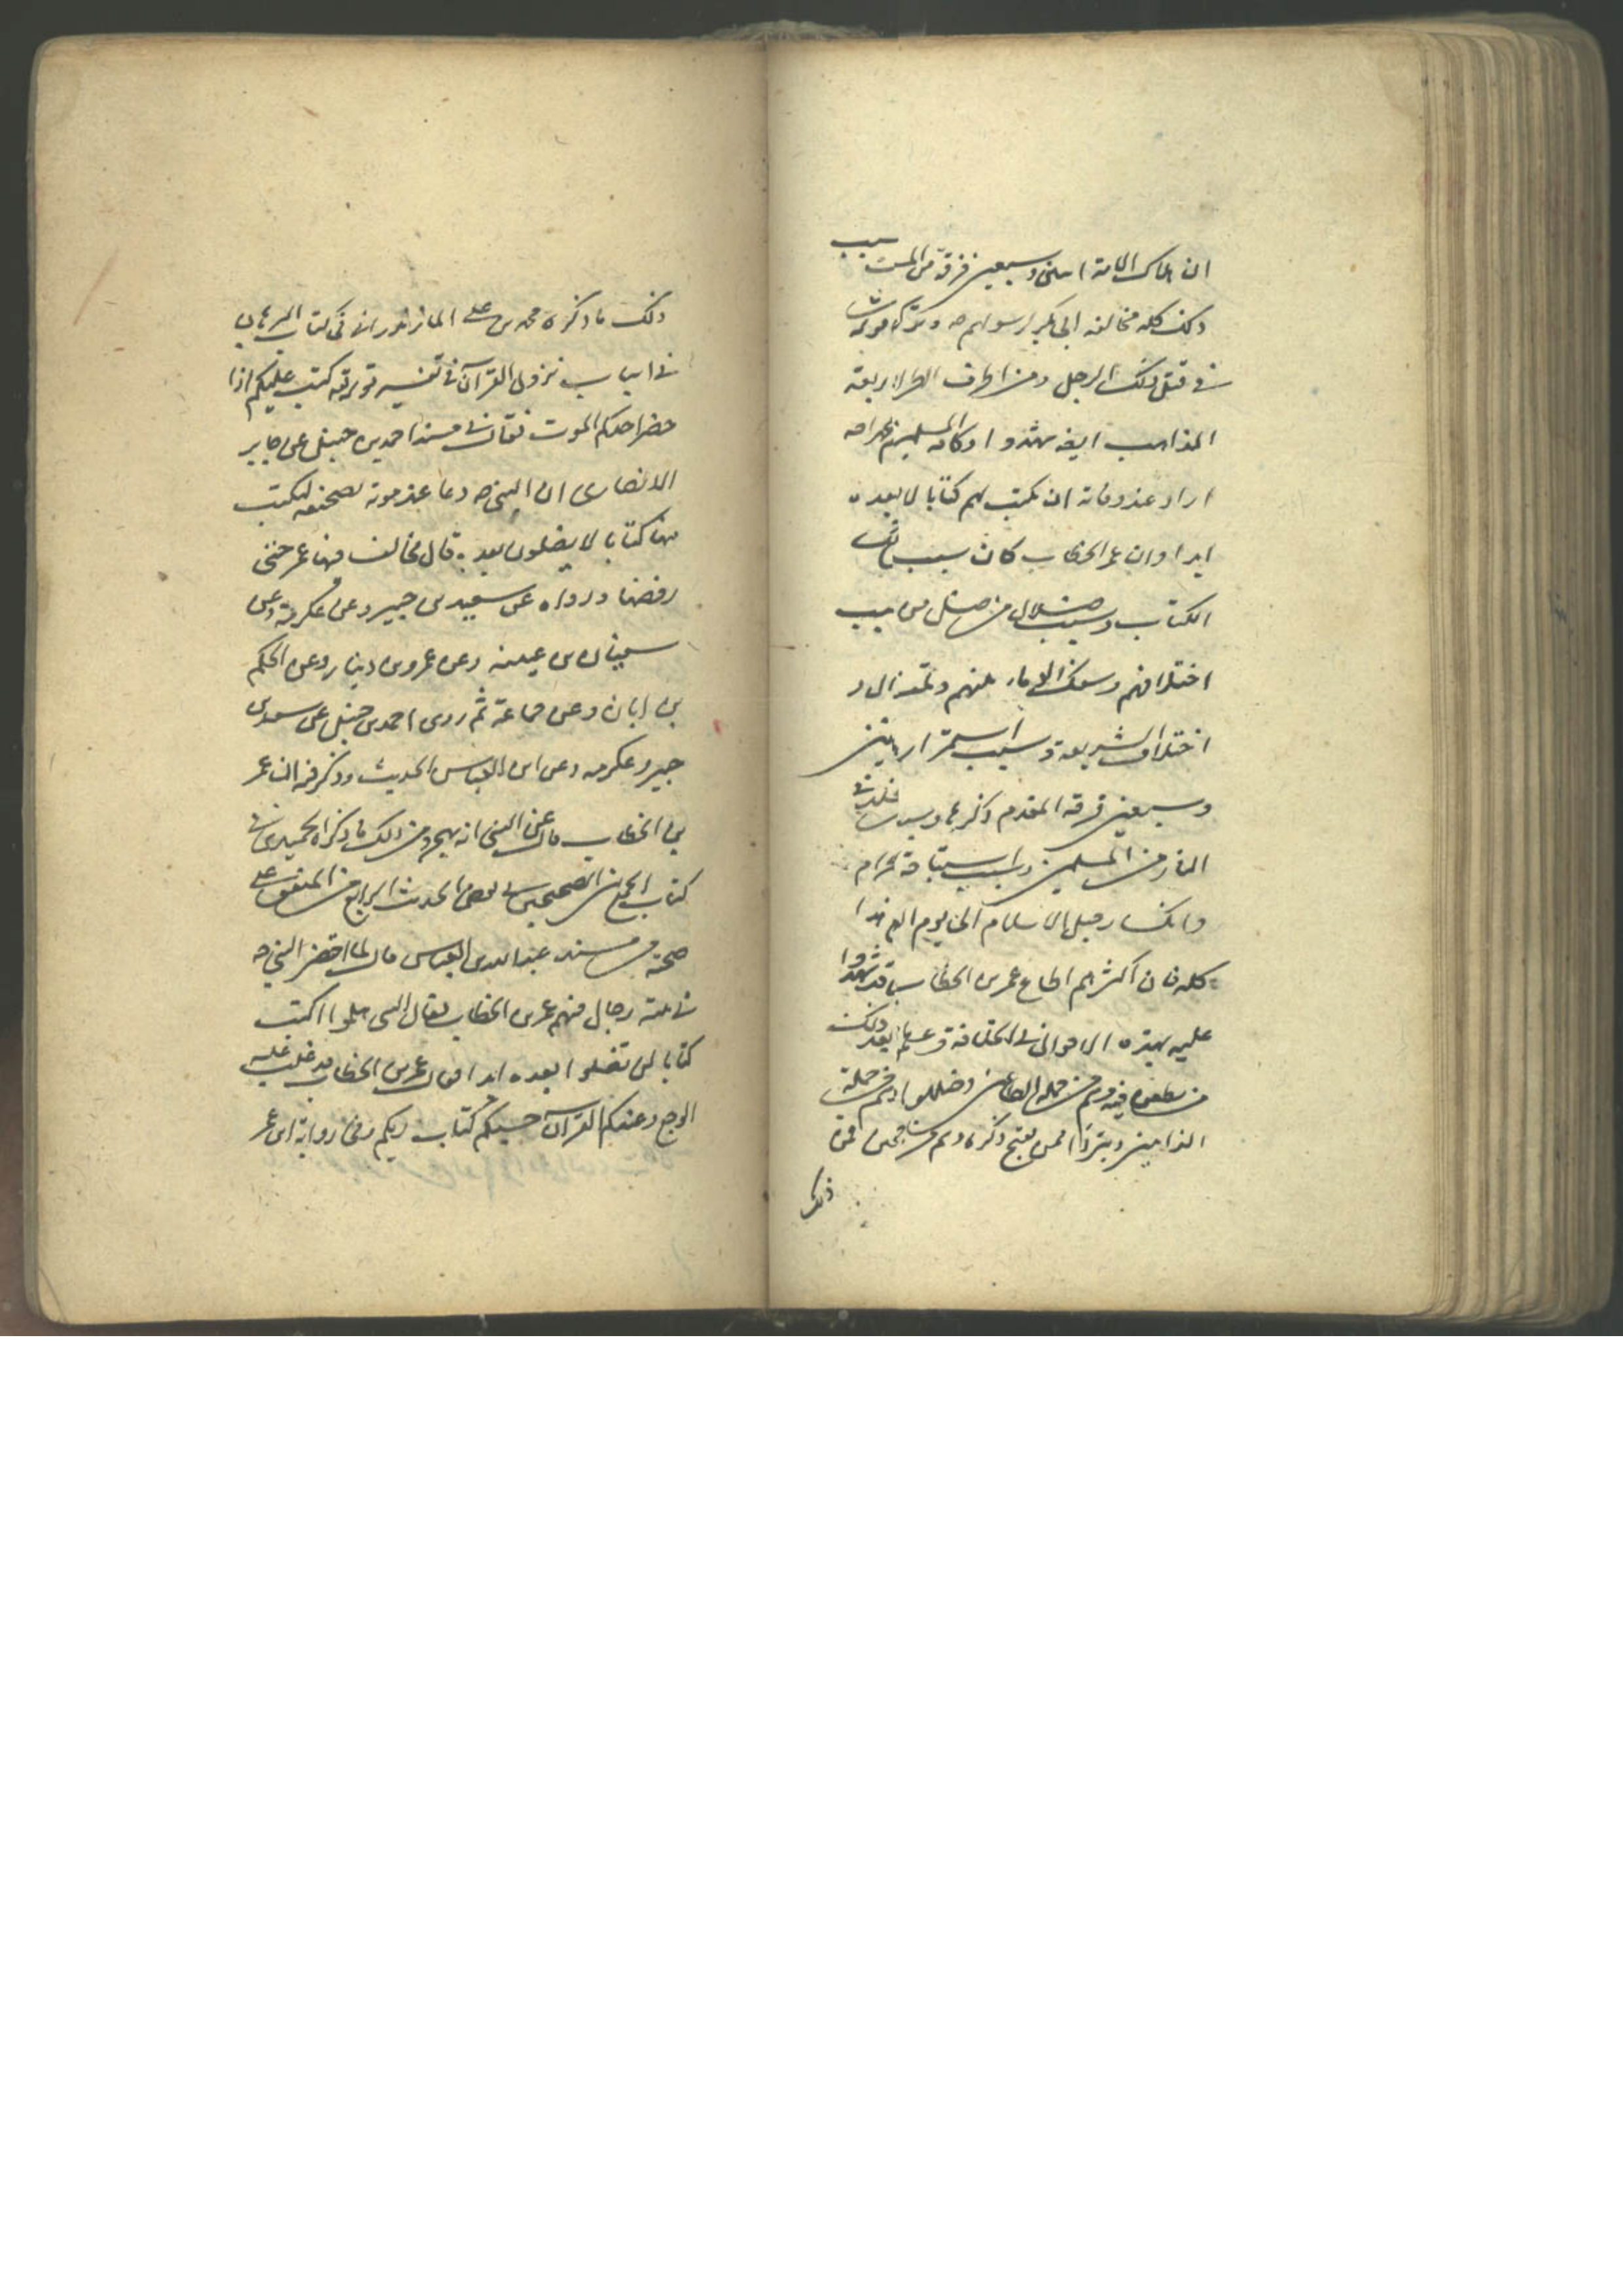 ان هلاك الامة اثنى وسبعين فرقة من المست سبب
ذلك كله مخالفة ابى بكر لرسولهم صه وتركه قوله
فى قتل ذلك الرجل ومن اطراف الاربعة
المذاهب ايضا شهدوا ان المسلمين صه
اراد عند وفاته ان يكتب لهم كتابا لا بعده
ابدا وان عمر الخطاب كان سبب
الكتاب وسبب ضلال من ضل من سبب
اختلافهم وسفك الدماء بينهم وتلف
اختلاف الشريعة وسبب استمرار اثنين
وسبعين فرقة المقدم ذكرها وسبب خلود فى
النار من المسلمين وسبب استباحة الحرام
وانكسار حبل الاسلام الى يوم
كله فان اكثرهم اطاع عمر بن الخطاب قد شهدوا
عليه بهذه الاحوال فى الخلافة بعد ذلك
من يطعن فيه وهم من جملة الطاعنين وضللوا وهم من جملة
الذامين ذكره وهم من فمن
ذلك
ذلك ما ذكره محمد بن على المازندرانى فى كتاب البرهان
فى اسباب نزول القرآن فى تفسير قوله كتب عليكم اذا
حضر احدكم الموت فقال فى مسند احمد بن حنبل عن جابر
الانصارى ان النبى صه دعا عند موته بصحيفة ليكتب
فيها كتابا لا يضلون بعده قال فخالف فيها عمر حتى
رفضها ورواه عن سعيد بن جبير وعن عكرمة وعن
سفيان بن عيينه وعن عمرو بن دينار وعن الحكم
بن ابان وعن جماعة ثم روى احمد بن حنبل عن سعيد بن
جبير وعكرمه وعن ابن العباس الحديث وذكر فيه ان عمر
بن الخطاب قال عن النبى انه يهجر ومن ذلك ما ذكره الحميدى فى
كتاب الجمع بين الصحيحين فى الحديث الرابع من المتفق على
صحته من مسند عبد الله بن العباس قال لما احتضر النبى صه
فى بيته رجال فيهم عمر بن الخطاب فقال النبى هلموا اكتب
كتابا لن تضلوا بعده ابدا فقال عمر بن الخطاب قد غلب عليه
الوجع وعندكم القرآن حسبكم كتاب ربكم وفى رواية ابن عمر